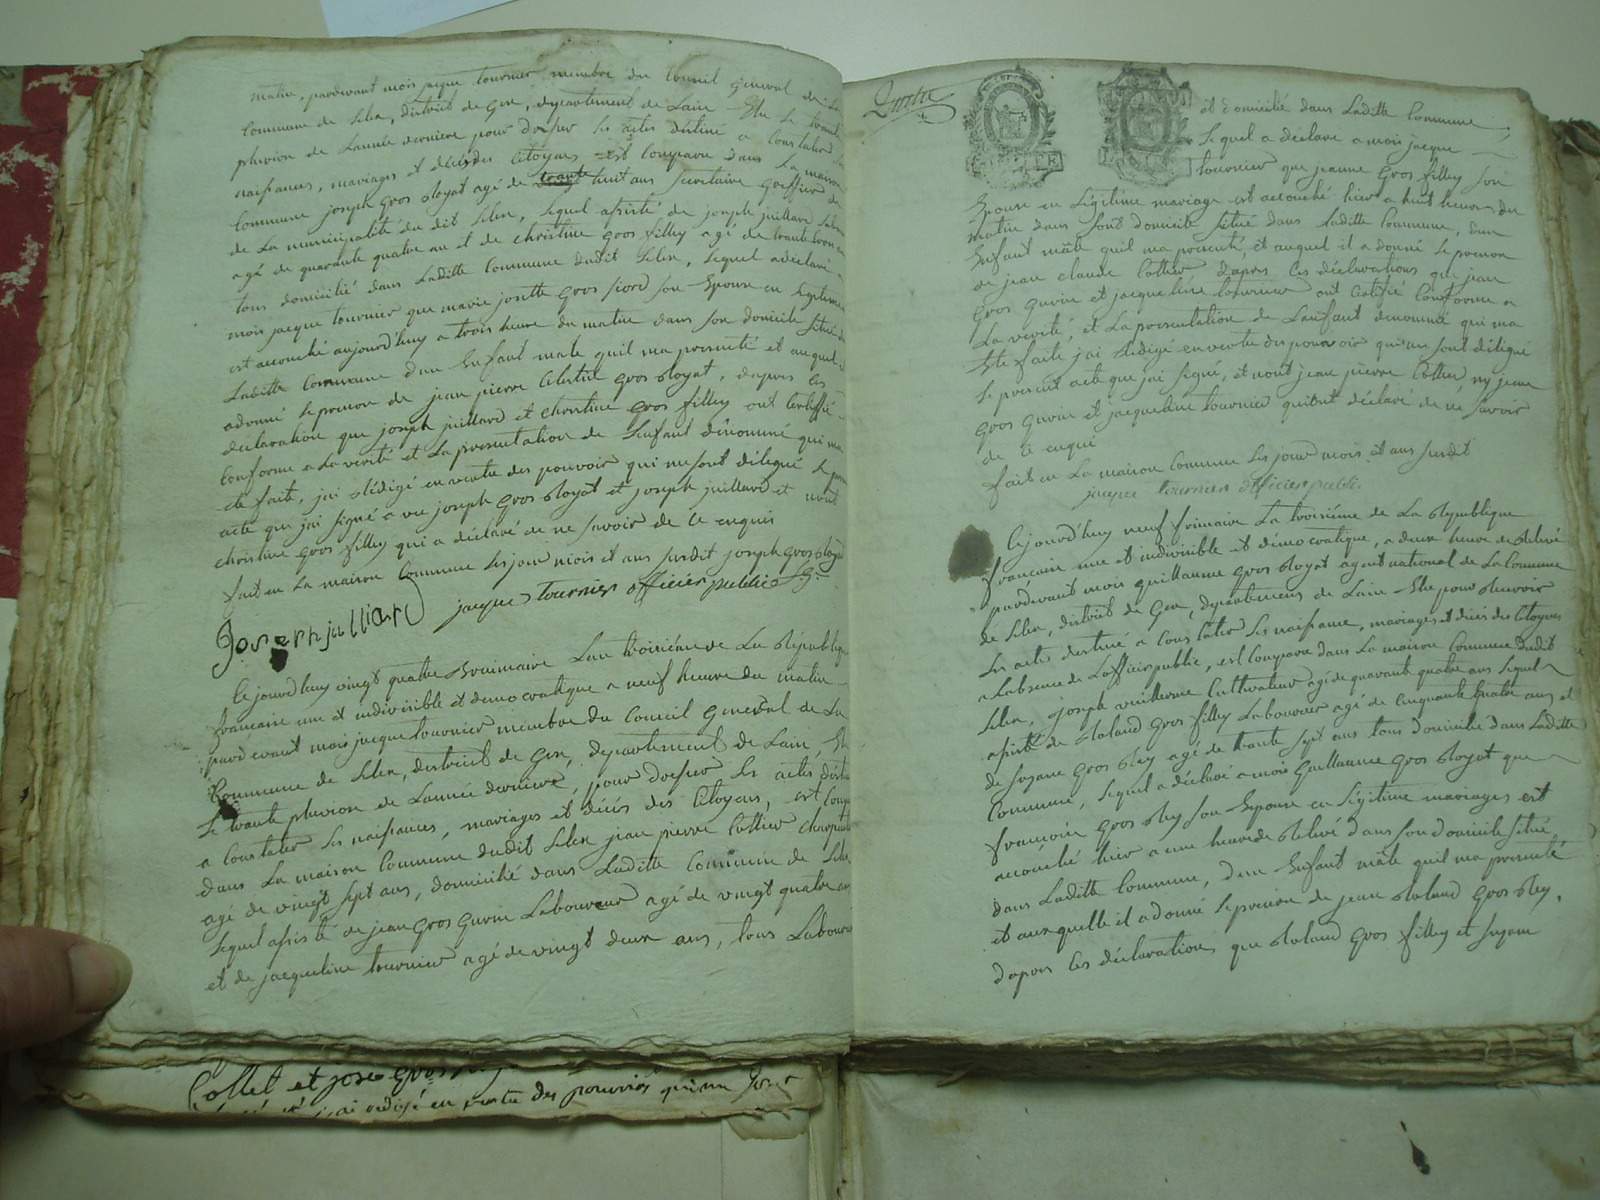 matin, pardevant moi jacque tournier membre du Conseil General de La
Commune de Lelex, district de Gex, departement de Lain Elu le trante
pluviose de Lannée derniere pour dresser les actes destiné a Constater les
naissances, mariages et décès des Citoyens est Comparu dans La maison
Commune joseph Gros Royat agé de trante huit ans secretaire Greffier
de La municipalité du dit Lelex, Lequel assisté de joseph juillard
agé de quarante quatre an et de christine Gros filley agé de trante
tous domicilié dans Laditte Commune dudit Lelex, Lequel a déclaré a
moi jacque tournier que marie josette Gros son Epouse en Legitime
est accouché aujourd'huy a trois heure du matin dans son domicile situé
Laditte Commune d'un Enfant male quil ma presenté et auquel il
a donné Le prenom de jean pierre Celestin Gros Royat, dapres Les
declaration que joseph juillard et christine Gros filley ont Certiffié
Conforme a La verité et La presentation de Lenfant dénommé qui ma
ete faite, jai Rédigé en vertu des pouvoir qui me sont délégué Le present
acte que jai signé avec joseph Gros Royat et joseph juillard et nont
christine Gros filley qui a déclaré de ne savoir de Ce enquis
fait en La maison Commune Les jour mois et ans susdit joseph Gros Royat
Joseph julliard jacque tournier officier public
Cejourdhuy vingt quatre Brumaire Lan troisieme de La Republique
francaise une et indivisible et democratique a neuf heure du matin
pardevant moi jacque tournier membre du Conseil General de La
Commune de Lelex, district de Gex, departement de Lain, Elu
Le trante pluviose de Lannée derniere, pour dresser les actes destiné
a Constater Les naissances, mariages et décès des Citoyens, est Comparu
dans La maison Commune dudit Lelex jean pierre Cottier charpentier
agé de vingt sept ans, domicilié dans Laditte Commune de Lelex
Lequel assisté de jean Gros Gurin Laboureur agé de vingt quatre ans
et de jacqueline tournier agé de vingt deux ans, tous Laboureur
et domicilié dans Laditte Commune
Lequel a déclaré a moi jacque
tournier que jeanne Gros filley son
Epouse en Légitime mariage est accouché hier a huit heures du
matin dans sont domicile situé dans Laditte Commune, d'un
Enfant mâle quil ma presenté, et auquel il a donné Le prenom
de jean claude Cottier dapres Ces déclarations que jean
Gros Gurin et jacqueline tournier ont Certifié Conforme a
La verité, et La presentation de Lenfant denommé qui ma
Ete faite, jai Rédigé en vertu des pouvoir qui me sont délégué
Le present acte que jai signé, et nont jean pierre Cottier, ny jean
Gros Gurin et jacqueline tournier qui ont déclaré de ne savoir
de Ce enqui
fait en La maison Commune Les jour mois et ans susdit
jacque tournier officier public
Cejourd'huy neuf frimaire La troisième de La Republique
francaise une et indivisible et démocratique, a deux heure de Relivé
pardevant moi guillaume Gros Royat agent national de La Commune
de Lelex, district de Gex, departement de Lain Elu pour Recevoir
Les actes destiné a Constater Les naissance, mariages et décès des Citoyens
a Labsence de Lofficier public, est Comparu dans La maison Commune dudit
Lelex, joseph Cultivateur agé de quarante quatre ans Lequel
assisté de Roland Gros filley Laboureur agé de Cinquante quatre ans et
de suzane Gros Rey agé de trante sept ans tous domicilié dans Laditte
Commune, Lequel a déclaré a moi Guillaume Gros Royat que
françoise Gros Rey son Epouse en Légitime mariages est
accouché hier a une heure de Relivé dans son domicile situé
dans Laditte Commune, d'un Enfant mâle quil ma presenté
et auxquelle il a donné Le prenom de jean Roland Gros Rey,
dapres Ces déclarations que Roland Gros filley et suzane
Collet et jose Gros
jai redigé en vertu des pouvoirs qui me sont